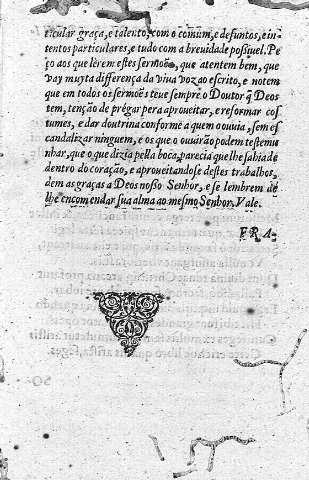 ticular graça, e talento, com o comum, e defuntos, e in-
tentos particulares, e tudo com a breuidade possiuel. Pe
ço aos que lèrem estes sermões, que atentem bem, que
vay muyta differença da viua voz ao escrito, e notem
que em todos os sermões teue sempre o Doutor q̃ Deos
tem, tenção de prégar pera aproueitar, e reformar cos
tumes, e dar doutrina conforme a quem o ouuia, sem es
candalizar ninguem, e os que o ouuirão podem testemu
nhar, que o que dizia pella boca, parecia que lhe sahia de
dentro do coração, e aproueitandose destes trabalhos,
dem as graças a Deos nosso Senhor, e se lembrem de
lhe encomendar sua alma ao mesmo Senhor. Vale.
FRA-